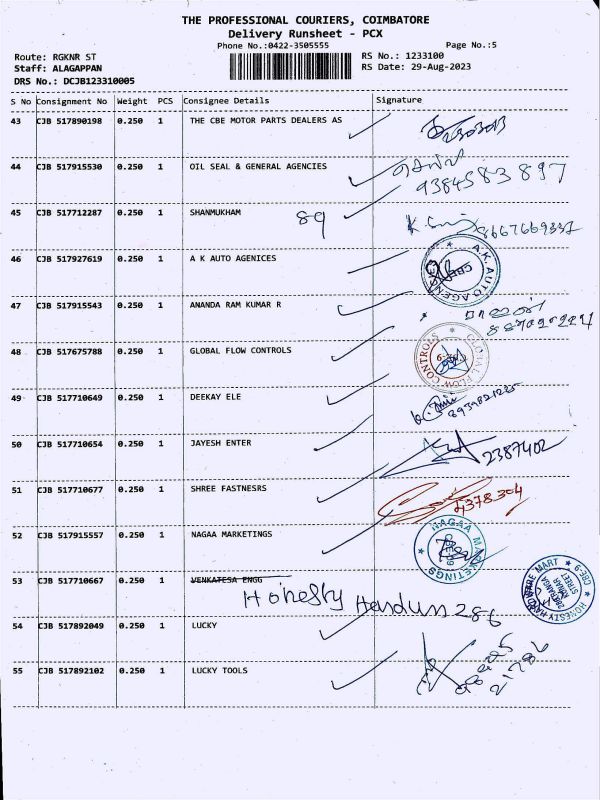 THE PROFESSIONAL COURIERS, COIMBATORE
Delivery Runsheet - PCX
Phone No.:0422-3505555
Page No.:5
Route: RGKNR ST
RS No.: 1233100
Staff: ALAGAPPAN
RS Date: 29-Aug-2023
DRS No.: DCJB123310005
S No Consignment No Weight PCS Consignee Details Signature
43 CJB 517890198 0.250 1 THE CBE MOTOR PARTS DEALERS AS
44 CJB 517915530 0.250 1 OIL SEAL & GENERAL AGENCIES
9384583897
45 CJB 517712287 0.250 1 SHANMUKHAM 89
8667669337
46 CJB 517927619 0.250 1 A K AUTO AGENICES
A.K. AUTO AGENCIES
CBE
47 CJB 517915543 0.250 1 ANANDA RAM KUMAR R
48 CJB 517675788 0.250 1 GLOBAL FLOW CONTROLS
GLOBAL FLOW CONTROLS
49 CJB 517710649 0.250 1 DEEKAY ELE
50 CJB 517710654 0.250 1 JAYESH ENTER
2387402
51 CJB 517710677 0.250 1 SHREE FASTNESRS
4378304
52 CJB 517915557 0.250 1 NAGAA MARKETINGS
NAGAA MARKETINGS
53 CJB 517710667 0.250 1 VENKATESA ENGG
Honesty 286
HONESTY HARDWARE MART CBE-9
STREET
54 CJB 517892049 0.250 1 LUCKY
55 CJB 517892102 0.250 1 LUCKY TOOLS